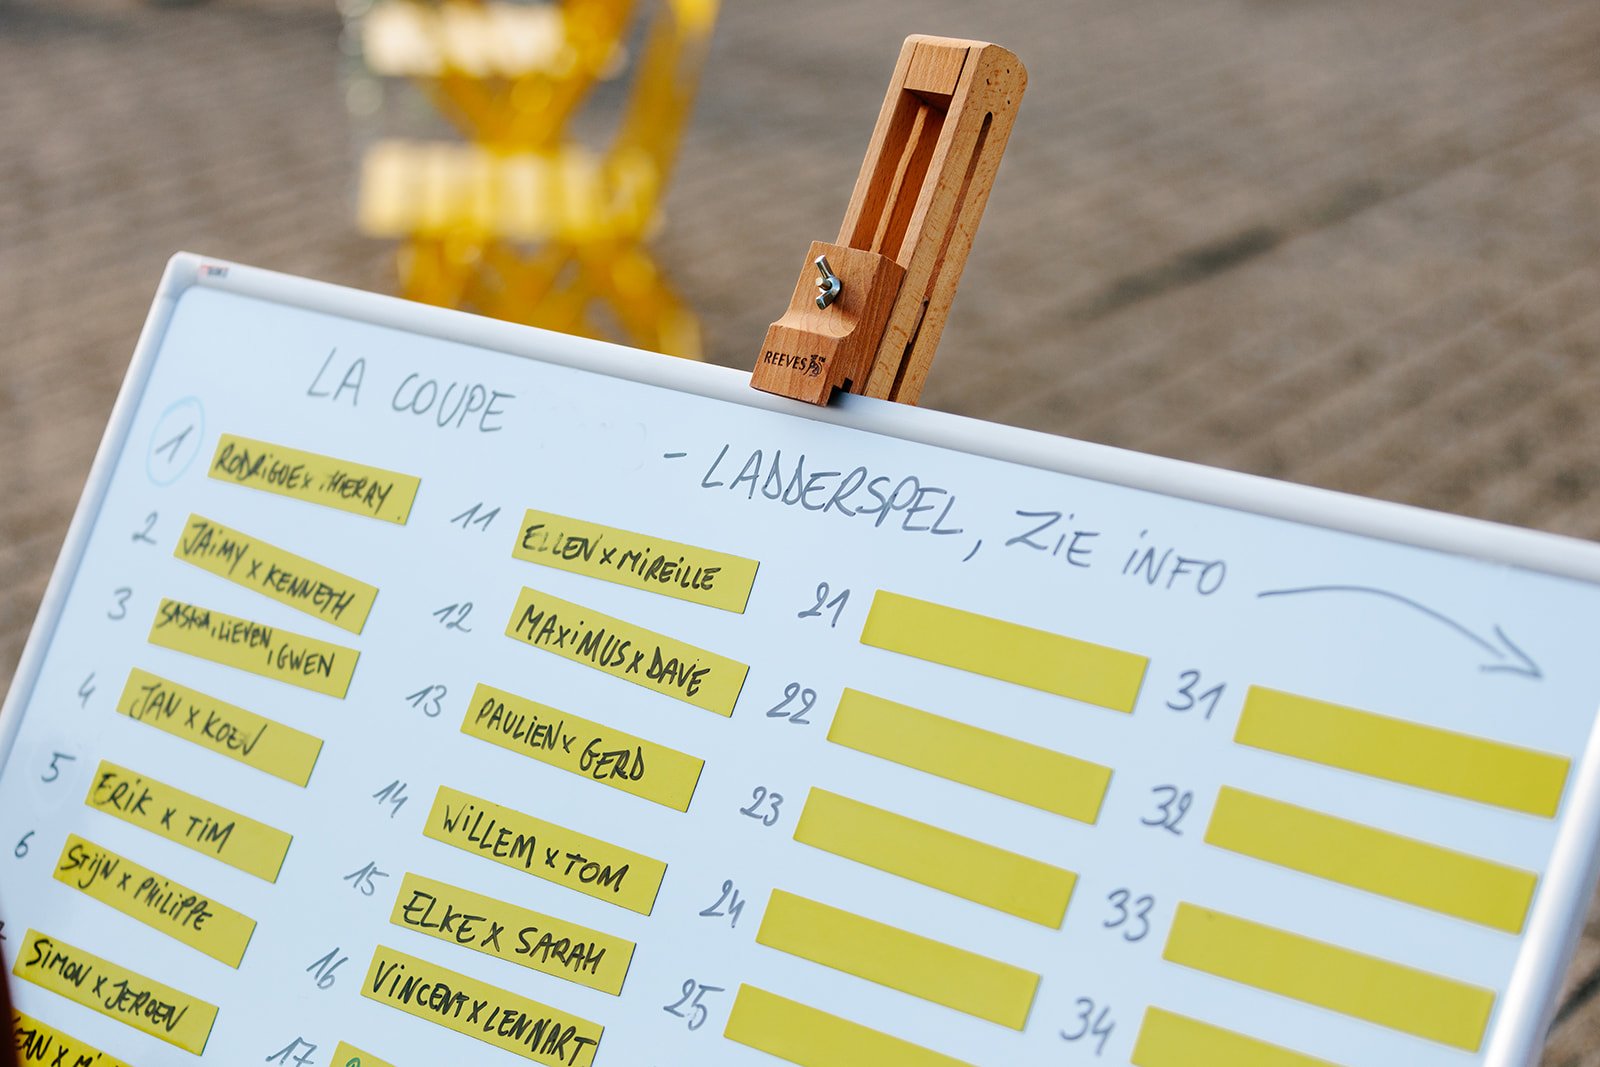 REEVES
LA COUPE
- LADDERSPEL, ZiE iNFO
1 RODRiGUE x THiERRY
2 JAiMY x KENNETH
3 SASKIA, LiEVEN, GWEN
4 JAN x KOEN
5 ERiK x TiM
6 STijN x PHiLiPPE
SiMON x JEROEN
11 ELLEN x MiREiLLE
12 MAXiMUS x DAVE
13 PAULiEN x GERD
14 WiLLEM x TOM
15 ELKE x SARAH
16 ViNCENT x LENNART
17
21
22
23
24
25
31
32
33
34